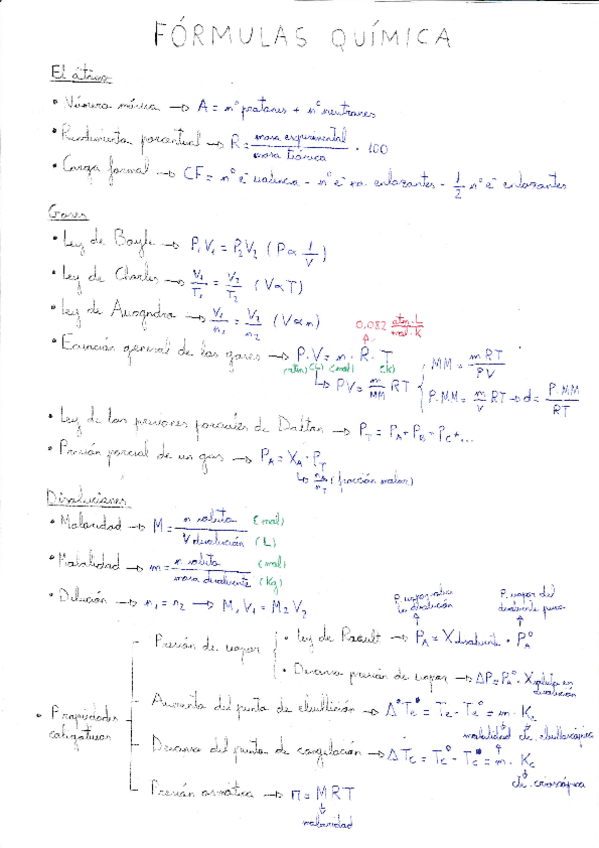 FÓRMULAS QUÍMICA
El átomo
• Número másico → A = nº protones + nº neutrones
• Rendimiento porcentual → R = masa experimental / masa teórica · 100
• Carga formal → CF = nº e⁻ valencia - nº e⁻ no enlazantes - 1/2 nº e⁻ enlazantes
Gases
• Ley de Boyle → P₁V₁ = P₂V₂ (P ∝ 1/V)
• Ley de Charles → V₁/T₁ = V₂/T₂ (V ∝ T)
• Ley de Avogadro → V₁/n₁ = V₂/n₂ (V ∝ n)
0.082 atm·L / mol·K
• Ecuación general de los gases → P·V = n·R·T
(atm) (L) (mol) (K)
↳ PV = m/MM RT
MM = mRT/PV
P·MM = m/V RT → d = P·MM/RT
• Ley de las presiones parciales de Dalton → P_T = P_A + P_B + P_C + ...
• Presión parcial de un gas → P_A = X_A · P_T
↳ n_A/n_T (fracción molar)
Disoluciones
• Molaridad → M = n soluto (mol) / V disolución (L)
• Molalidad → m = n soluto (mol) / masa disolvente (Kg)
• Dilución → n₁ = n₂ → M₁V₁ = M₂V₂
P. vapor
la disolución
P. vapor del
disolvente puro
• Propiedades
coligativas
Presión de vapor
• Ley de Raoult → P_A = X disolvente · P_A°
• Descenso presión de vapor → ΔP = P_A° · X soluto en
disolución
Aumento del punto de ebullición → ΔTe = Te - Te° = m · Ke
molalidad cte. ebulloscópica
Descenso del punto de congelación → ΔTc = Tc° - Tc = m · Kc
cte. crioscópica
Presión osmótica → π = MRT
molaridad